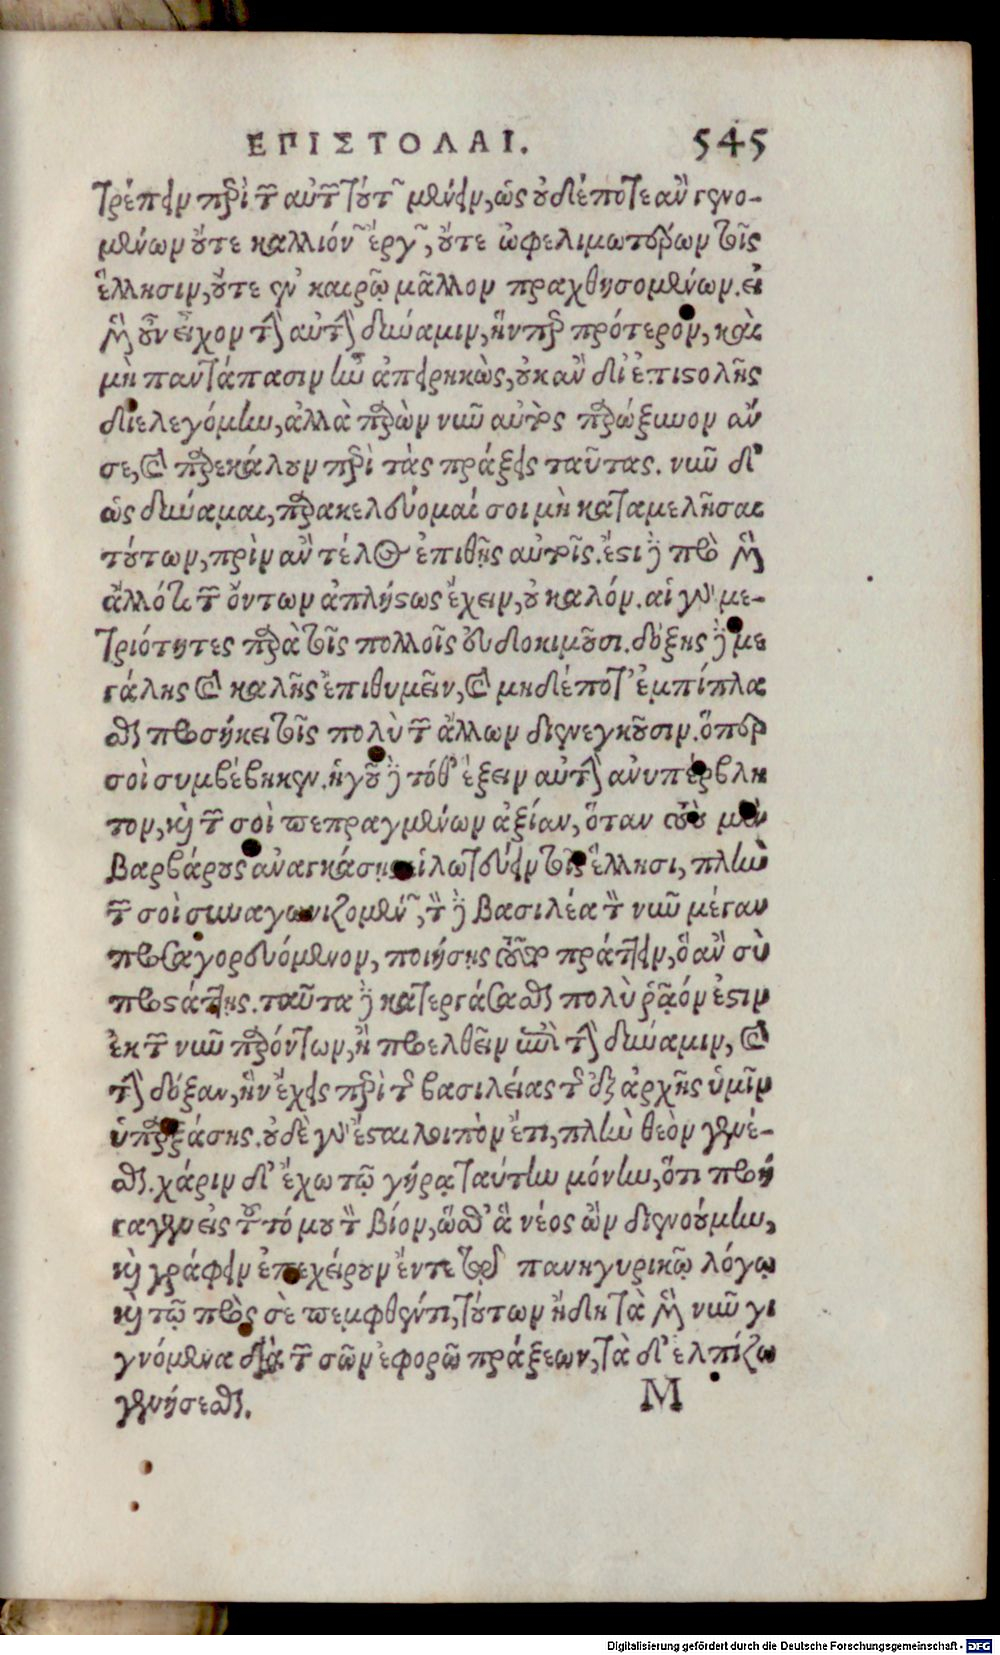 ΕΠΙΣΤΟΛΑΙ. 545
τρέπειν περὶ τὸν αὐτὸν τοῦτον μένειν, ὡς οὐδέποτε ἂν γενο-
μένων οὔτε καλλιόνων ἔργων, οὔτε ὠφελιμωτέρων τοῖς
ἕλλησιν, οὔτε ἐν καιρῷ μᾶλλον πραχθησομένων. εἰ
μὲν οὖν εἶχον τὴν αὐτὴν δύναμιν, ἥνπερ πρότερον, καὶ
μὴ παντάπασιν ἦν ἀπειρηκὼς, οὐκ ἂν δι᾽ ἐπιστολῆς
διελεγόμην, ἀλλὰ παρὼν νῦν αὐτὸς παρώξυνον ἄν
σε, καὶ παρεκάλουν περὶ τὰς πράξεις ταύτας. νῦν δ᾽
ὡς δύναμαι, παρακελεύομαί σοι μὴ καταμελῆσαι
τούτων, πρὶν ἂν τέλος ἐπιθῇς αὐτοῖς. ἔστι δὲ πρὸς μὲν
ἄλλό τι τῶν ὄντων ἀπλήστως ἔχειν, οὐ καλόν. αἱ γὰρ με-
τριότητες παρὰ τοῖς πολλοῖς εὐδοκιμοῦσι. δόξης δὲ με
γάλης καὶ καλῆς ἐπιθυμεῖν, καὶ μηδέποτ᾽ ἐμπίπλα
σθαι προσήκει τοῖς πολὺ τῶν ἄλλων διενεγκοῦσιν. ὅπερ
σοὶ συμβέβηκεν. ἡγοῦ δὲ τόθ᾽ ἕξειν αὐτὴν ἀνυπέρβλη
τον, καὶ τῶν σοὶ πεπραγμένων ἀξίαν, ὅταν τοὺς μὲν
Βαρβάρους ἀναγκάσῃς εἱλωτεύειν τοῖς ἕλλησι, πλὴν
τῶν σοὶ συναγωνιζομένων, τὸν δὲ βασιλέα τὸν νῦν μέγαν
προσαγορευόμενον, ποιήσῃς τοῦτο πράττειν, ὃ ἂν σὺ
προστάττῃς. ταῦτα δὲ κατεργάσασθαι πολὺ ῥᾷόν ἐστιν
ἐκ τῶν νῦν παρόντων, ἢ προελθεῖν ἐπὶ τὴν δύναμιν, καὶ
τὴν δόξαν, ἣν ἔχεις περὶ τῆς βασιλείας τῆς ἐξ ἀρχῆς ὑμῖν
ὑπαρξάσης. οὐδὲ γὰρ ἔσται λοιπὸν ἔτι, πλὴν θεὸν γενέ-
σθαι. χάριν δ᾽ ἔχω τῷ γήρᾳ ταύτην μόνην, ὅτι προή
γαγεν εἰς τοῦτό μου τὸν βίον, ὥσθ᾽ ἃ νέος ὢν διενοούμην,
καὶ γράφειν ἐπεχείρουν ἔν τε τῷ πανηγυρικῷ λόγῳ
καὶ τῷ πρὸς σὲ πεμφθέντι, τούτων ἤδη τὰ μὲν νῦν γι
γνόμενα διὰ τῶν σῶν ἐφορῶ πράξεων, τὰ δ᾽ ἐλπίζω
γενήσεσθαι. M
Digitalisierung gefördert durch die Deutsche Forschungsgemeinschaft - DFG